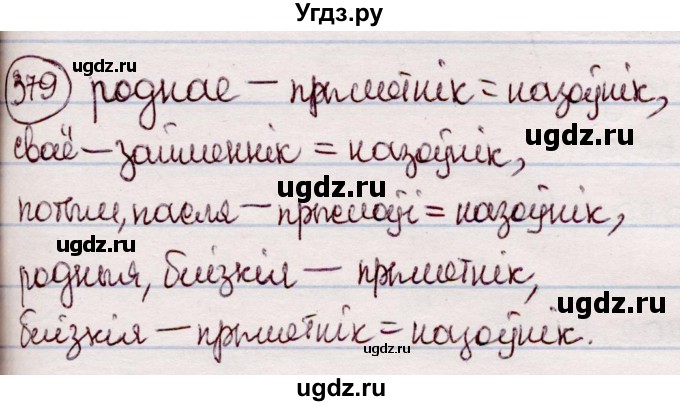 Угдз.ру
379 роднае – прыметнік = назоўнік,
сваё – займеннік = назоўнік,
потым, пасля – прыслоўі = назоўнік,
родныя, блізкія – прыметнік,
блізкія – прыметнік = назоўнік.
ugdz.ru
ugdz.ru
ugdz.ru
ugdz.ru
ugdz.ru
ugdz.ru
ugdz.ru
ugdz.ru
ugdz.ru
ugdz.ru